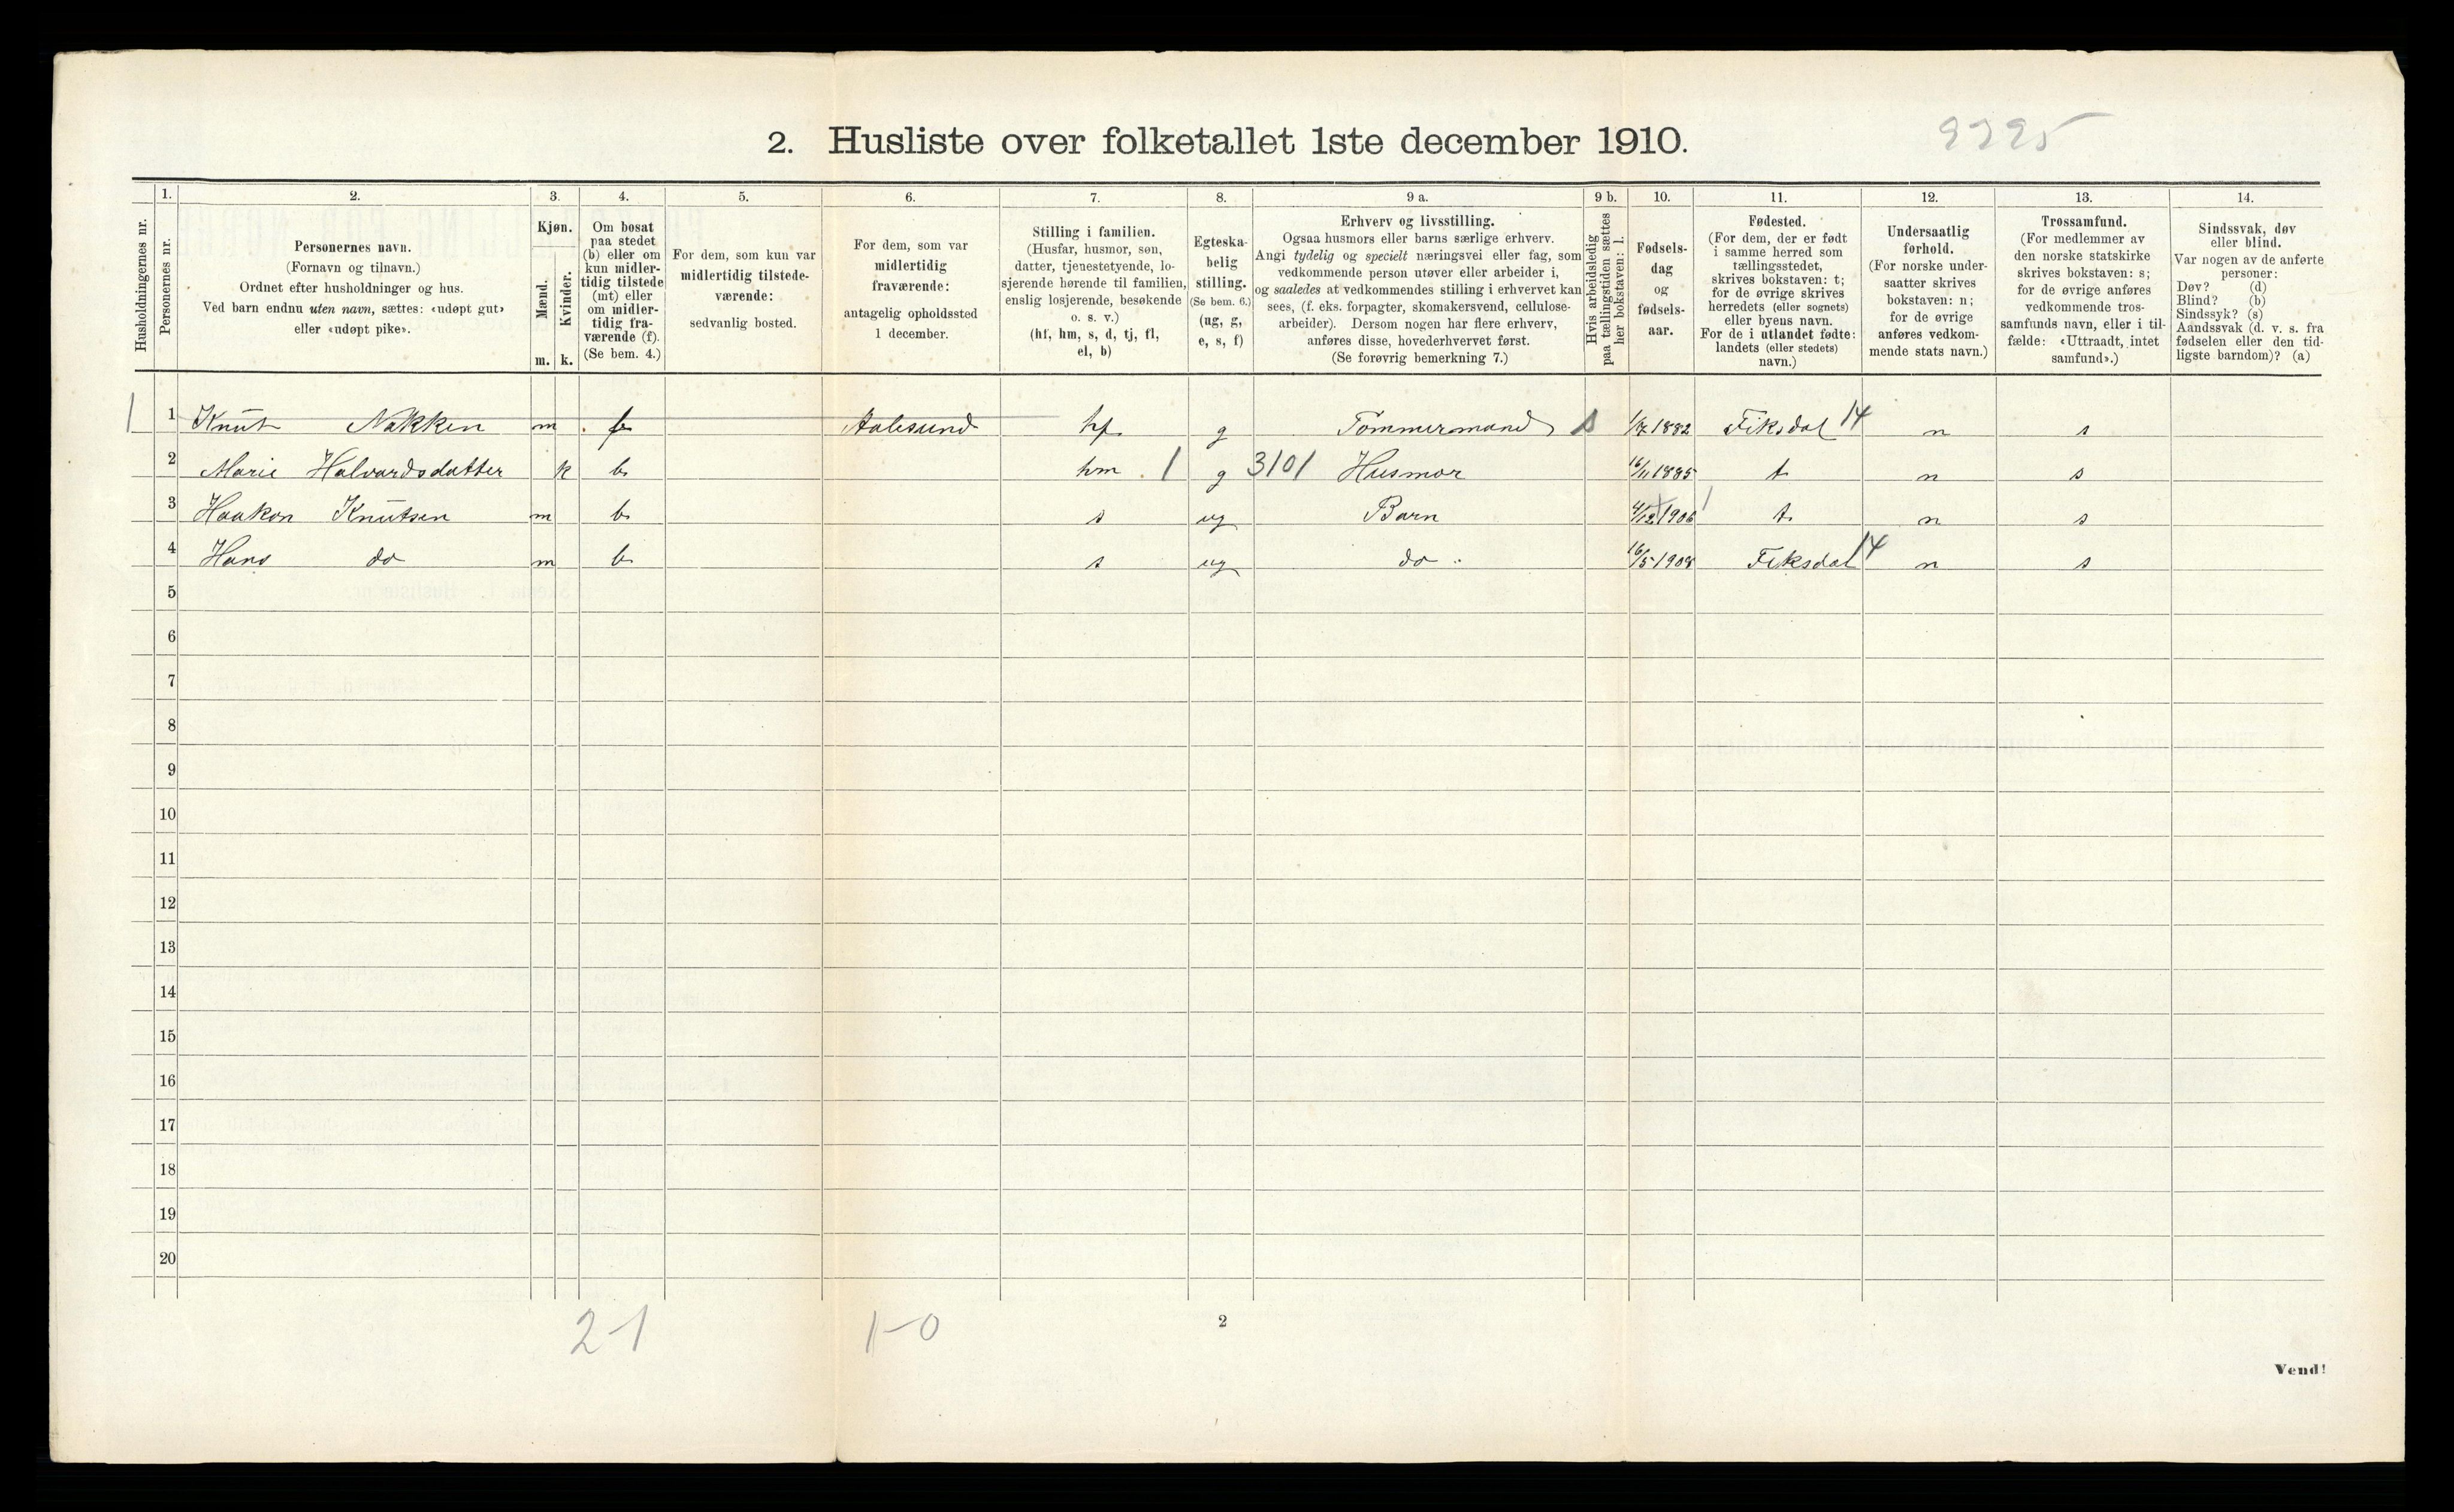 2. Husliste over folketallet 1ste december 1910.
Husholdningernes nr.
1.
Personernes nr.
2.
Personernes navn.
(Fornavn og tilnavn.)
Ordnet efter husholdninger og hus.
Ved barn endnu uten navn, sættes: «udøpt gut»
eller «udøpt pike».
3.
Kjøn.
Mænd.
Kvinder.
m. k.
4.
Om bosat
paa stedet
(b) eller om
kun midler-
tidig tilstede
(mt) eller
om midler-
tidig fra-
værende (f).
(Se bem. 4.)
5.
For dem, som kun var
midlertidig tilstede-
værende:
sedvanlig bosted.
6.
For dem, som var
midlertidig
fraværende:
antagelig opholdssted
1 december.
7.
Stilling i familien.
(Husfar, husmor, søn,
datter, tjenestetyende, lo-
sjerende hørende til familien,
enslig losjerende, besøkende
o. s. v.)
(hf, hm, s, d, tj, fl,
el, b)
8.
Egteska-
belig
stilling.
(Se bem. 6.)
(ug, g,
e, s, f)
9 a.
Erhverv og livsstilling.
Ogsaa husmors eller barns særlige erhverv.
Angi tydelig og specielt næringsvei eller fag, som
vedkommende person utøver eller arbeider i,
og saaledes at vedkommendes stilling i erhvervet kan
sees, (f. eks. forpagter, skomakersvend, cellulose-
arbeider). Dersom nogen har flere erhverv,
anføres disse, hovederhvervet først.
(Se forøvrig bemerkning 7.)
9 b.
Hvis arbeidsledig
paa tællingstiden sættes
her bokstaven: l.
10.
Fødsels-
dag
og
fødsels-
aar.
11.
Fødested.
(For dem, der er født
i samme herred som
tællingsstedet,
skrives bokstaven: t;
for de øvrige skrives
herredets (eller sognets)
eller byens navn.
For de i utlandet fødte:
landets (eller stedets)
navn.)
12.
Undersaatlig
forhold.
(For norske under-
saatter skrives
bokstaven: n;
for de øvrige
anføres vedkom-
mende stats navn.)
13.
Trossamfund.
(For medlemmer av
den norske statskirke
skrives bokstaven: s;
for de øvrige anføres
vedkommende tros-
samfunds navn, eller i til-
fælde: «Uttraadt, intet
samfund».)
14.
Sindssvak, døv
eller blind.
Var nogen av de anførte
personer:
Døv? (d)
Blind? (b)
Sindssyk? (s)
Aandssvak (d. v. s. fra
fødselen eller den tid-
ligste barndom)? (a)
1 1 Knut Nakken m f Aalesund hf g Tømmermand s 1882 Fiksdal 14 n s
2 Marie Halvardsdatter k b hm 1 g 3101 Husmor 16/11 1885 t n s
3 Haakon Knutsen m b s ug Barn 4/12 1906 1 t n s
4 Hans do m b s ug do 16/5 1908 Fiksdal 14 n s
5
6
7
8
9
10
11
12
13
14
15
16
17
18
19
20
2-1 1-0
2
Vend!